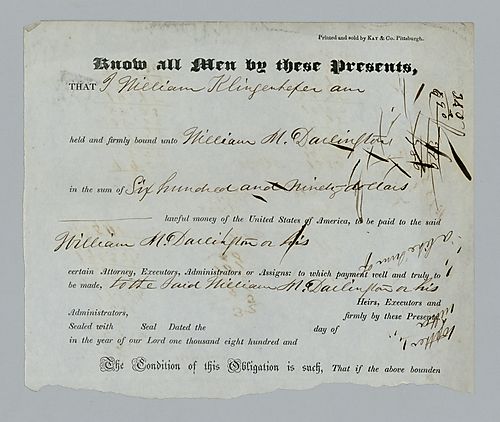 Printed and sold by KAY & Co. Pittsburgh.
Know all Men by these Presents,
THAT I William Klingenhefer am
held and firmly bound unto William M. Darlington
in the sum of Six hundred and Ninety dollars
lawful money of the United States of America, to be paid to the said
William M. Darlington or his
certain Attorney, Executors, Administrators or Assigns: to which payment well and truly to
be made, to the said William M. Darlington or his
Heirs, Executors and
Administrators, firmly by these Presents
Sealed with Seal Dated the day of
in the year of our Lord one thousand eight hundred and
The Condition of this Obligation is such, That if the above bounden